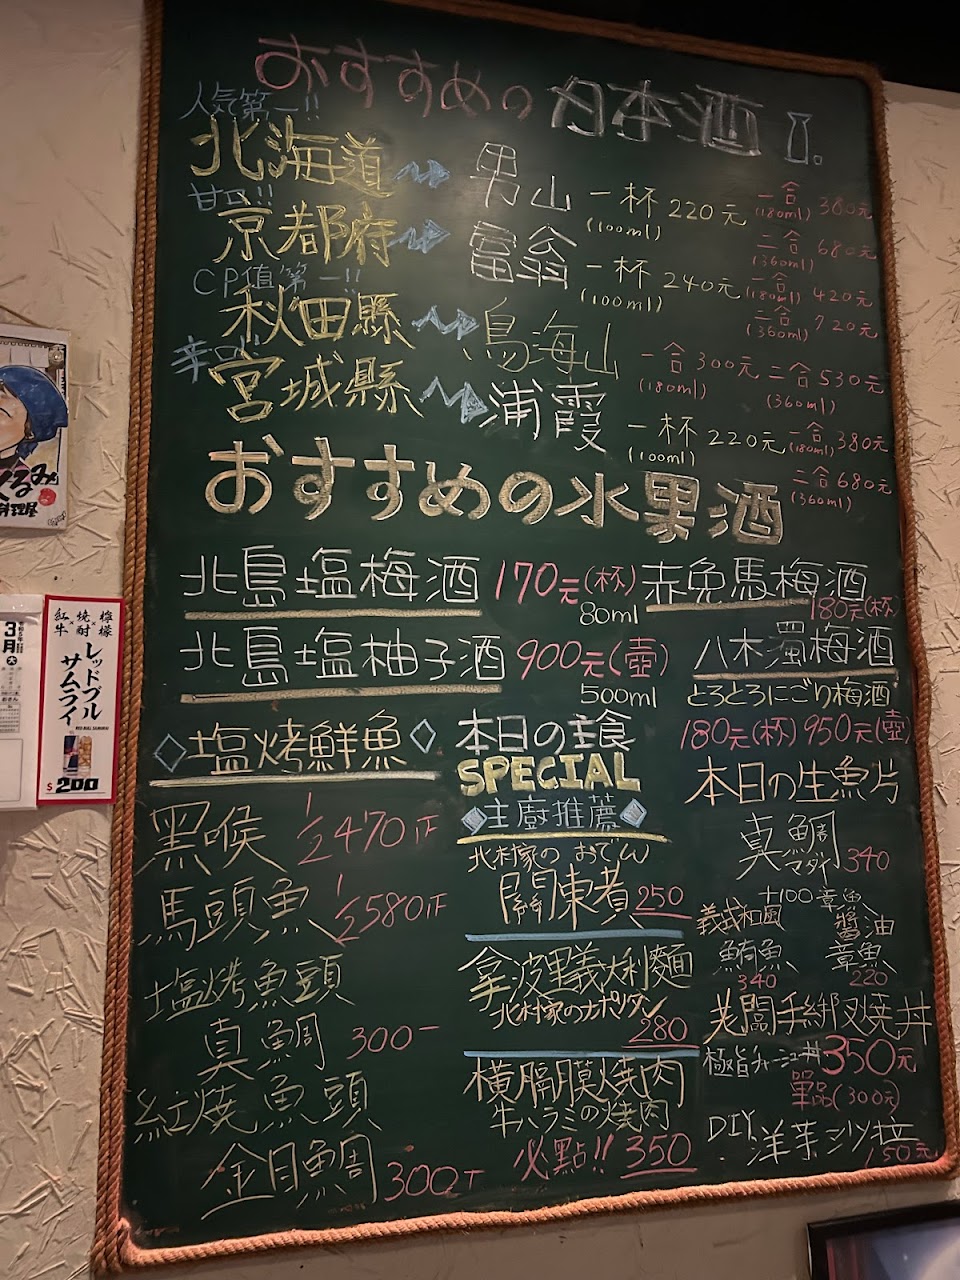 おすすめの日本酒
人気第一!!
北海道 男山 一杯220元 (100ml) 一合360元 (180ml) 二合680元 (360ml)
甘口!!
京都府 富翁 一杯240元 (100ml) 一合420元 (180ml) 二合720元 (360ml)
CP值第一!!
秋田縣 鳥海山 一合300元 (180ml) 二合530元 (360ml)
辛口
宮城縣 浦霞 一杯220元 (100ml) 一合380元 (180ml) 二合680元 (360ml)
おすすめの水果酒
北島塩梅酒 170元(杯) 80ml
北島塩柚子酒 900元(壺) 500ml
赤兔馬梅酒 180元(杯)
八木濁梅酒
とろとろにごり梅酒
180元(杯) 950元(壺)
塩烤鮮魚
黑喉 1/2 470
馬頭魚 1/2 580
塩烤魚頭
真鯛 300-
紅燒魚頭
金目鯛 300
本日の主食
SPECIAL
主廚推薦
北村家の おでん
關東煮 250
拿波里義大利麵
北村家のナポリタン
280
橫膈膜燒肉
牛ハラミの焼肉
必點!! 350
本日の生魚片
真鯛 マダイ 340
+100章魚
義式和風 鮪魚 340
醬油 章魚 220
老闆手綁叉燒丼
極旨チャーシュー丼 350元
單品(300元)
DIY 洋芋沙拉 150元
くるみ
料理屋
3月
大
紅牛×燒酎×檸檬
レッドブルサムライ
RED BULL SAMURAI
$200